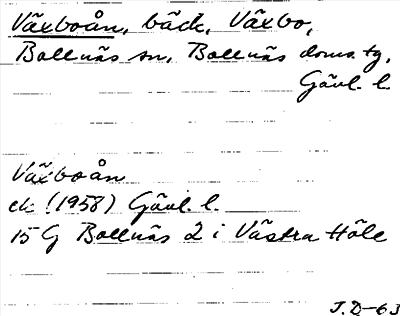 Växboån, bäck, Växbo,
Bollnäs sn, Bollnäs doms. tg,
Gävl. l.
Växboån
ek. (1958) Gävl. l.
15 G Bollnäs 2 i Västra Höle
J.D-63